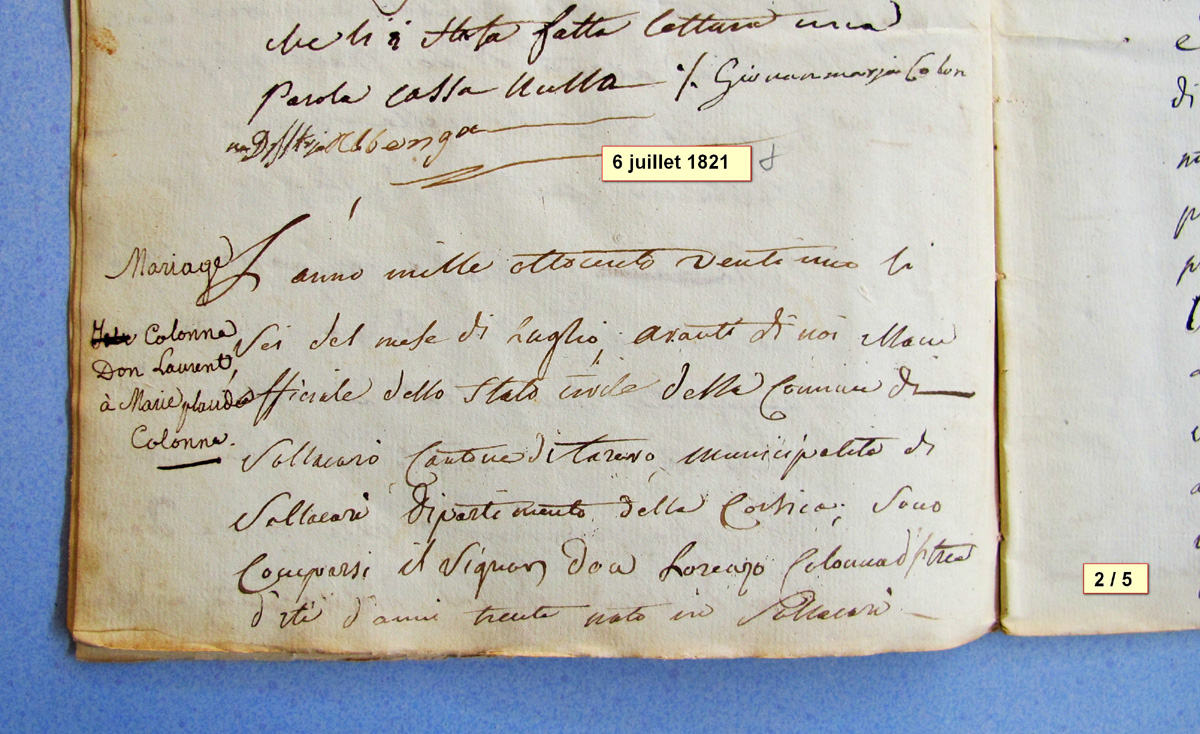 che li è stata fatta lettura una
Parola cassa Nulla ./. Giovanmaria Colon
na D'Istria Albenga
6 juillet 1821
Mariage
L'anno mille ottocento venti uno li
Colonna
Don Laurent,
à Marie plaude
Colonna.
Sei del mese di Luglio, avanti di noi Maire
officiale dello Stato civile della Comune di
Sollacarò Cantone di Taravo, municipalità di
Sollacarò dipartimento della Corsica, Sono
Comparsi il Signor Don Lorenzo Colonna d'Istria
d'età d'anni trenta nato in Sollacarò
2 / 5
di